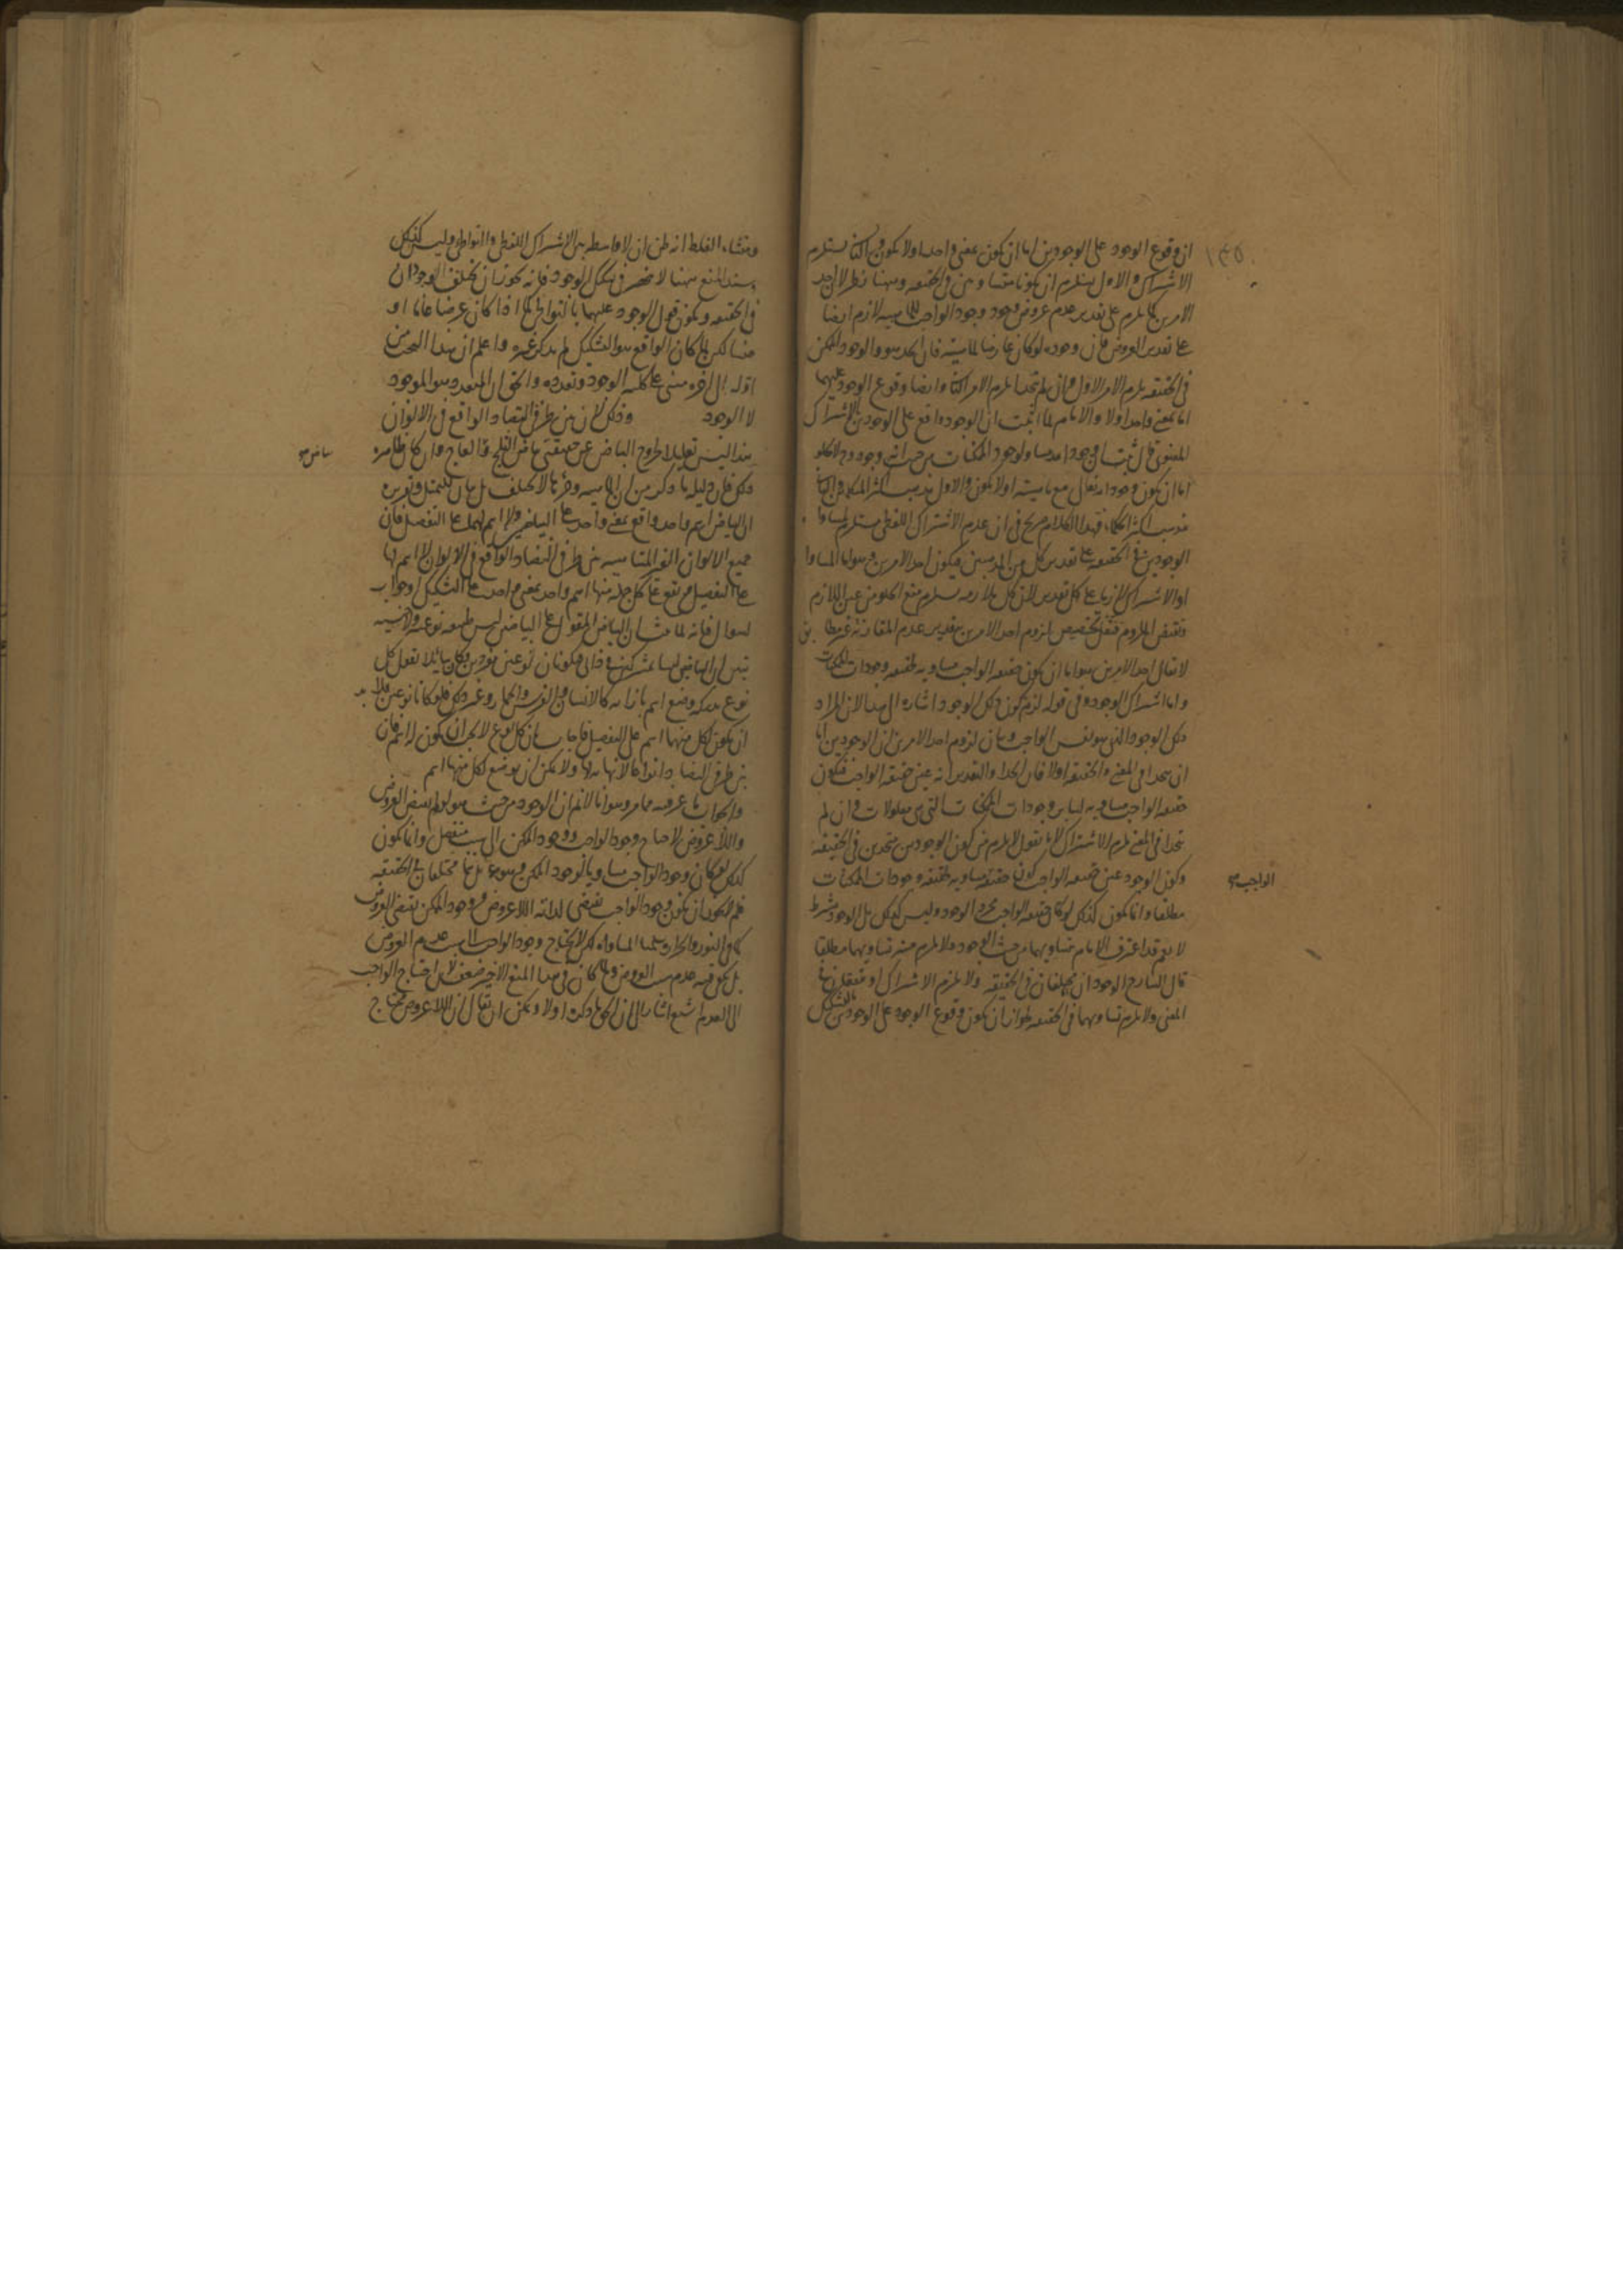 ١٣٥
ان وقوع الوجود على الوجودين اما ان يكون بمعنى واحد اولا يكون والثانى يستلزم
الاشتراك والاول يستلزم ان يكونا متساويين فى الحقيقه وههنا نظر لان احد
الامرين كما يلزم على تقدير عدم عروض وجود الواجب للماهيه لازم ايضا
على تقدير العروض فان وجوده لو كان عارضا لماهيته فان اتحد هو والوجود الممكن
فى الحقيقه يلزم الامر الاول وان لم يتحدا يلزم الامر الثانى وايضا وقوع الوجود عليهما
اما بمعنى واحد اولا والامام لما اثبت ان الوجود واقع على الوجودين بالاشتراك
المعنوى قال ثبت ان وجود الله مساو لوجود الممكنات من حيث انه وجود وح لا يخلو
اما ان يكون وجود الله تعالى مع ماهيته اولا يكون والاول مذهب اكثر المتكلمين والثانى
مذهب اكثر الحكماء فهذا الكلام صريح فى ان عدم الاشتراك اللفظى مستلزم لمساواة
الوجودين فى الحقيقه على تقدير كل من المذهبين فيكون احد الامرين وهو اما المساواة
او الاشتراك لازما على كل تقدير لان كل ملازمه يستلزم منع الخلو من عين اللازم
ونقيض الملزوم فتخصيص لزوم احد الامرين بتقدير عدم المقارنة غير مطابق
لا يقال احد الامرين هو اما ان يكون حقيقه الواجب مساويه لحقيقه وجودات الممكنات
واما اشتراك الوجود وفى قوله لزم كون ذلك الوجود اشاره الى هذا لان المراد
ذلك الوجود الذى هو نفس الواجب وبيان لزوم احد الامرين ان الوجودين اما
ان يتحدا فى المعنى والحقيقه اولا فان اتحدا والتقدير انه عين حقيقه الواجب فيكون
حقيقه الواجب مساويه لساير وجودات الممكنات التى هى معلولات وان لم
يتحدا فى المعنى يلزم الاشتراك لانا نقول لا يلزم من كون الوجودين متحدين فى الحقيقه
وكون الوجود عين حقيقه الواجب كون حقيقته مساويه لحقيقه وجودات الممكنات
الواجب
مطلقا وانما يكون كذلك لو كان حقيقه الواجب مجرد الوجود وليس كذلك بل الوجود بشرط
لا نعم قد اعترف الامام بتساويهما من حيث الوجود ولا يلزم منه تساويهما مطلقا
قال الشارح الوجود ان مختلفان فى الحقيقه ولا يلزم الاشتراك او متفقان فى
المعنى ولا يلزم تساويهما فى الحقيقه لجواز ان يكون وقوع الوجود على الوجودين بالتشكيل
ومنشاء الغلط انه ظن ان لا واسطه بين الاشتراك اللفظى والتواطى وليس كذلك
وسند المنع ههنا لا ينحصر فى تشكيك الوجود فانه يجوز ان يختلف الوجودان
فى الحقيقه ويكون قول الوجود عليهما بالتواطى كما اذا كان عرضا عاما او
جنسا لكن لما كان الواقع هو التشكيك لم يذكر غيره واعلم ان هذا البحث من
اوله الى اخره مبنى على كليه الوجود وتعدده والحق ان المتعدد هو الموجود
لا الوجود وذلك لان بين طرفى التضاد الواقع فى الالوان
هذا ليس تعليلا لخروج البياض عن حقيقتى بياض الثلج والعاج وان كان ظاهره
بياض
ذلك فان دليله ما ذكر من ان الماهيه وجزئها لا يختلف بل بيان للتمثيل وتقريره
ان البياض اسم واحد واقع بمعنى واحد على البياضين ولا اسم لهما على التفصيل فان
جميع الالوان الغير المتناهيه بين طرفى التضاد الواقع فى الالوان لا اسم لها
على التفصيل ويقع على كل جمله منها اسم واحد بمعنى واحد على التشكيك وجواب
لسوال فانه لما بين ان البياض المقول على البياضين ليس طبيعه نوعيه ولا جنسيه
تبين ان البياضين ليسا بمشتركين فى ذاتى فيكونان نوعين مفردين وكان سائلا يقول كل
نوع يدركه وضع اسم بازائه كالانسان والفرس والحمار وغير ذلك فلو كانا نوعين فلا بد
ان يكون لكل منهما اسم على التفصيل فاجاب بان كل نوع لا يجب ان يكون له اسم فان
بين طرفى التضاد انواعا لا نهايه لها ولا يمكن ان يوضع لكل منها اسم
والجواب ما عرفته مما مر وهو انا لا نسلم ان الوجود من حيث هو لو لم يقتض العروض
واللاعروض لاحتاج وجود الواجب ووجود الممكن الى سبب منفصل وانما يكون
كذلك لو كان وجود الواجب مساويا لوجود الممكن وهو ممنوع بل هما مختلفان بالحقيقه
فلم لا يجوز ان يكون وجود الواجب يقتضى لذاته اللاعروض ووجود الممكن يقتضى العروض
كما فى النور والحراره سلمنا المساواه لكن لا يحتاج وجود الواجب الى سبب عدم العروض
بل يكفى فيه عدم سبب العروض ولما كان فى هذا المنع الاخير ضعف لان احتياج الواجب
الى العدم اشنع اشار الى ان الحق ما ذكره اولا ويمكن ان يقال ان اللاعروض محتاج